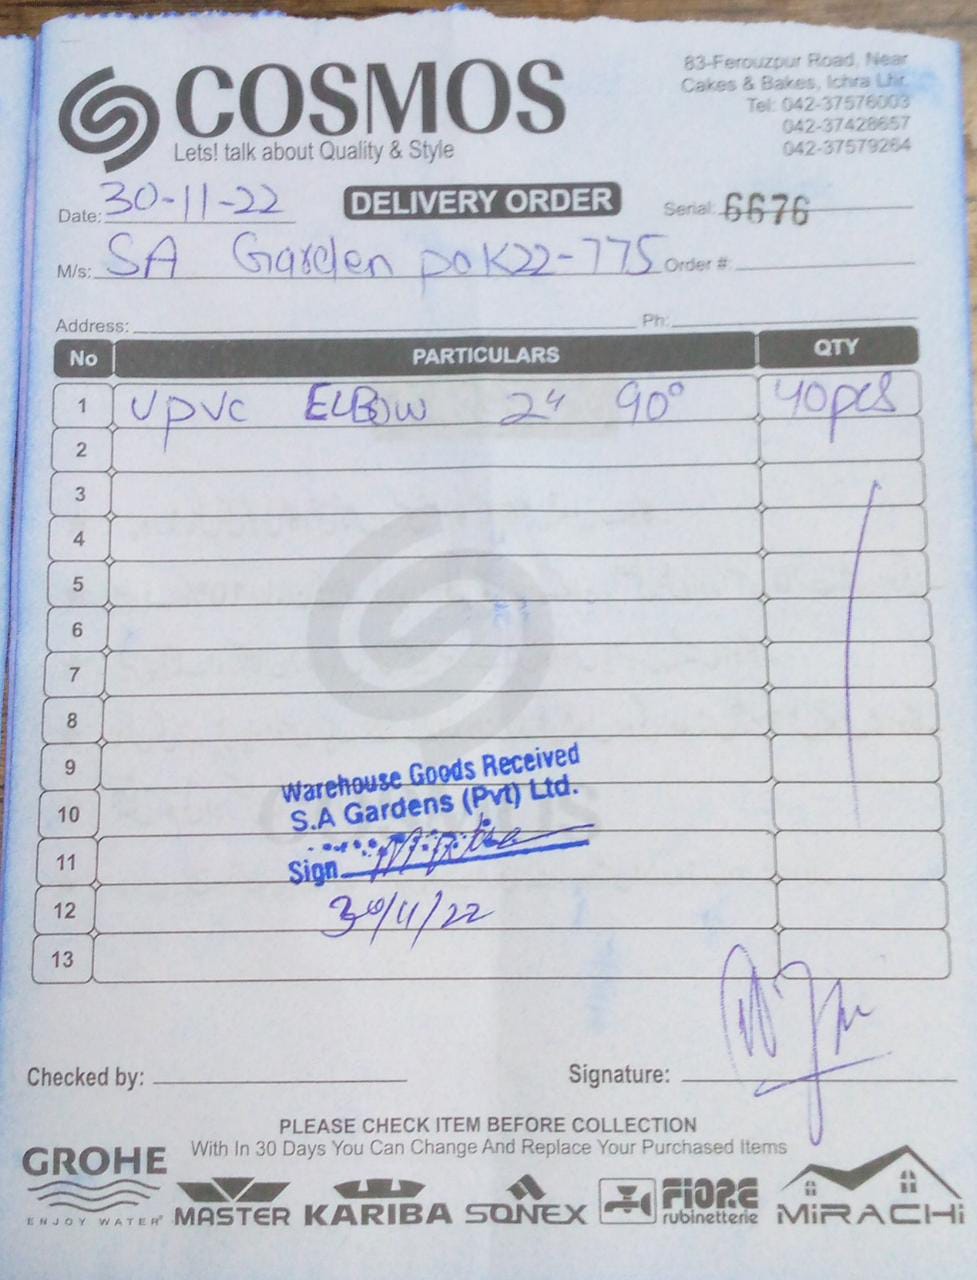 COSMOS
Lets! talk about Quality & Style
83-Ferouzpur Road, Near
Cakes & Bakes, Ichra Lhr.
Tel: 042-37576003
042-37428657
042-37579264
Date: 30-11-22
DELIVERY ORDER
Serial: 6676
M/s: SA Garden poK22-775 Order #:
Address: Ph:
No PARTICULARS QTY
1 UPVC ELBOW 2" 90° 40pcs
2
3
4
5
6
7
8
9
10
11
12
13
Warehouse Goods Received
S.A Gardens (Pvt) Ltd.
Sign
30/11/22
Checked by:
Signature:
PLEASE CHECK ITEM BEFORE COLLECTION
With In 30 Days You Can Change And Replace Your Purchased Items
GROHE
ENJOY WATER®
MASTER
KARIBA
SONEX
FIORE
rubinetterie
MiRACHi